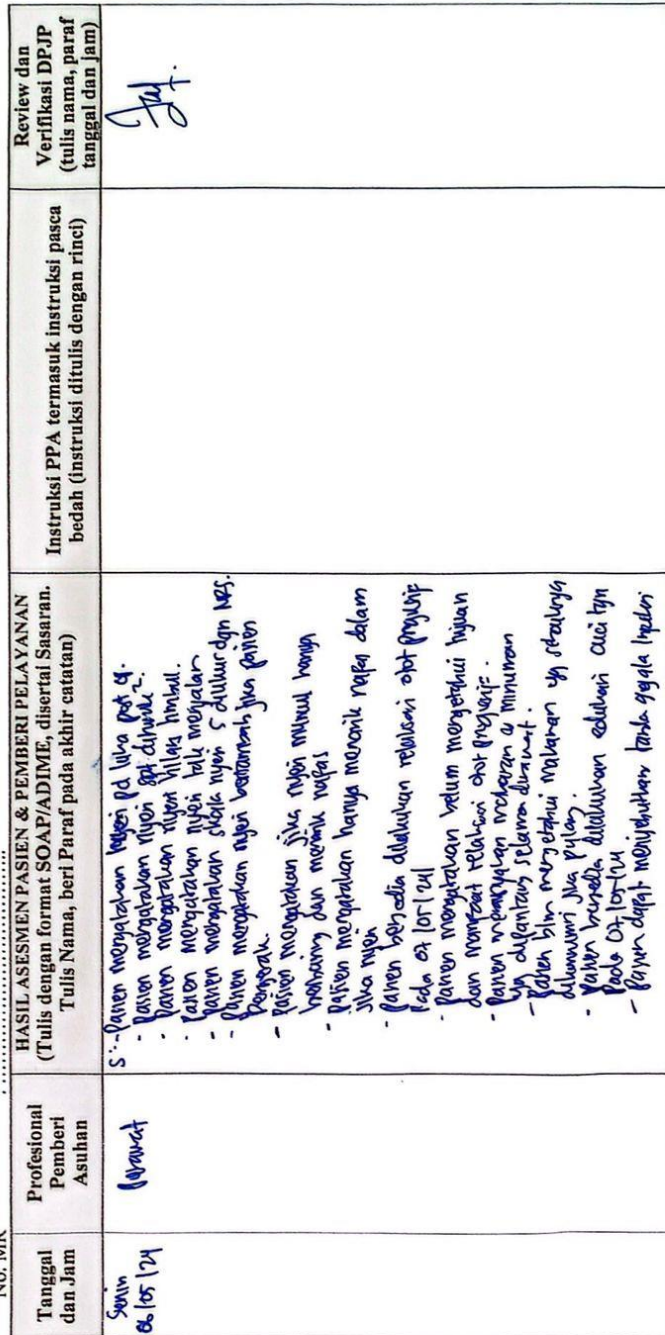 No. MR ....................
Tanggal
dan Jam
Profesional
Pemberi
Asuhan
HASIL ASESMEN PASIEN & PEMBERI PELAYANAN
(Tulis dengan format SOAP/ADIME, disertai Sasaran.
Tulis Nama, beri Paraf pada akhir catatan)
Instruksi PPA termasuk instruksi pasca
bedah (instruksi ditulis dengan rinci)
Review dan
Verifikasi DPJP
(tulis nama, paraf
tanggal dan jam)
Senin
06/05/24
Perawat
S: - Pasien mengatakan nyeri pd luka post op.
- Pasien mengatakan nyeri spt ditusuk2.
- Pasien mengatakan nyeri hilang timbul.
- Pasien mengatakan nyeri tak menjalar
- Pasien mengatakan skala nyeri 5 diukur dgn NRS.
- Pasien mengatakan nyeri bertambah jika pasien
bergerak.
- Pasien mengatakan jika nyeri muncul hanya
berbaring dan menarik nafas
- Pasien mengatakan hanya menarik nafas dalam
jika nyeri
- Pasien bersedia dilakukan relaksasi otot progresif
Pada 07/05/24
- Pasien mengatakan belum mengetahui tujuan
dan manfaat relaksasi otot progresif.
- Pasien menanyakan makanan & minuman
yg dipantang selama dirawat.
- Pasien blm mengetahui makanan yg sebaiknya
dikonsumsi jika pulang.
- Pasien bersedia dilakukan edukasi cuci tgn
Pada 07/05/24
- Pasien dapat menyebutkan tanda gejala infeksi